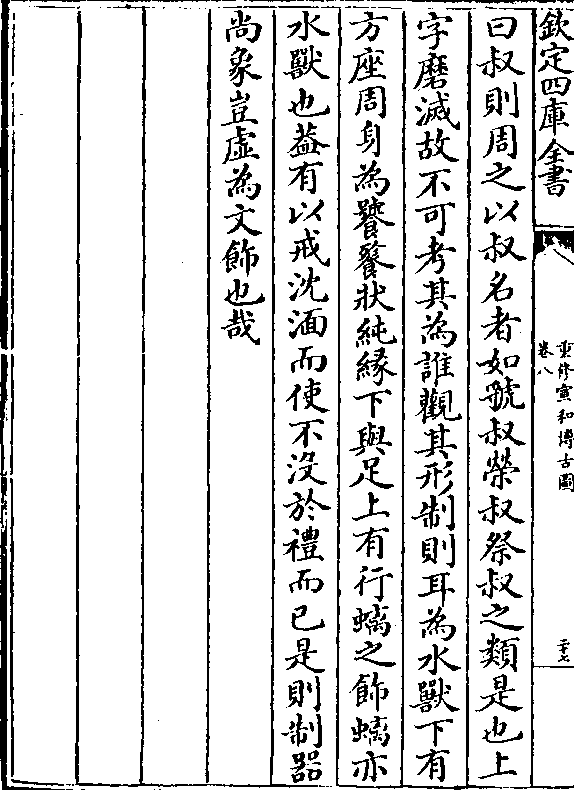 欽定四庫全書
重修宣和博古圖
卷八
二十七
曰叔則周之以叔名者如虢叔榮叔祭叔之類是也上
字磨滅故不可考其為誰觀其形制則耳為水獸下有
方座周身為饕餮狀純緣下與足上有行螭之飾螭亦
水獸也蓋有以戒沈湎而使不沒於禮而已是則制器
尚象豈虛為文飾也哉